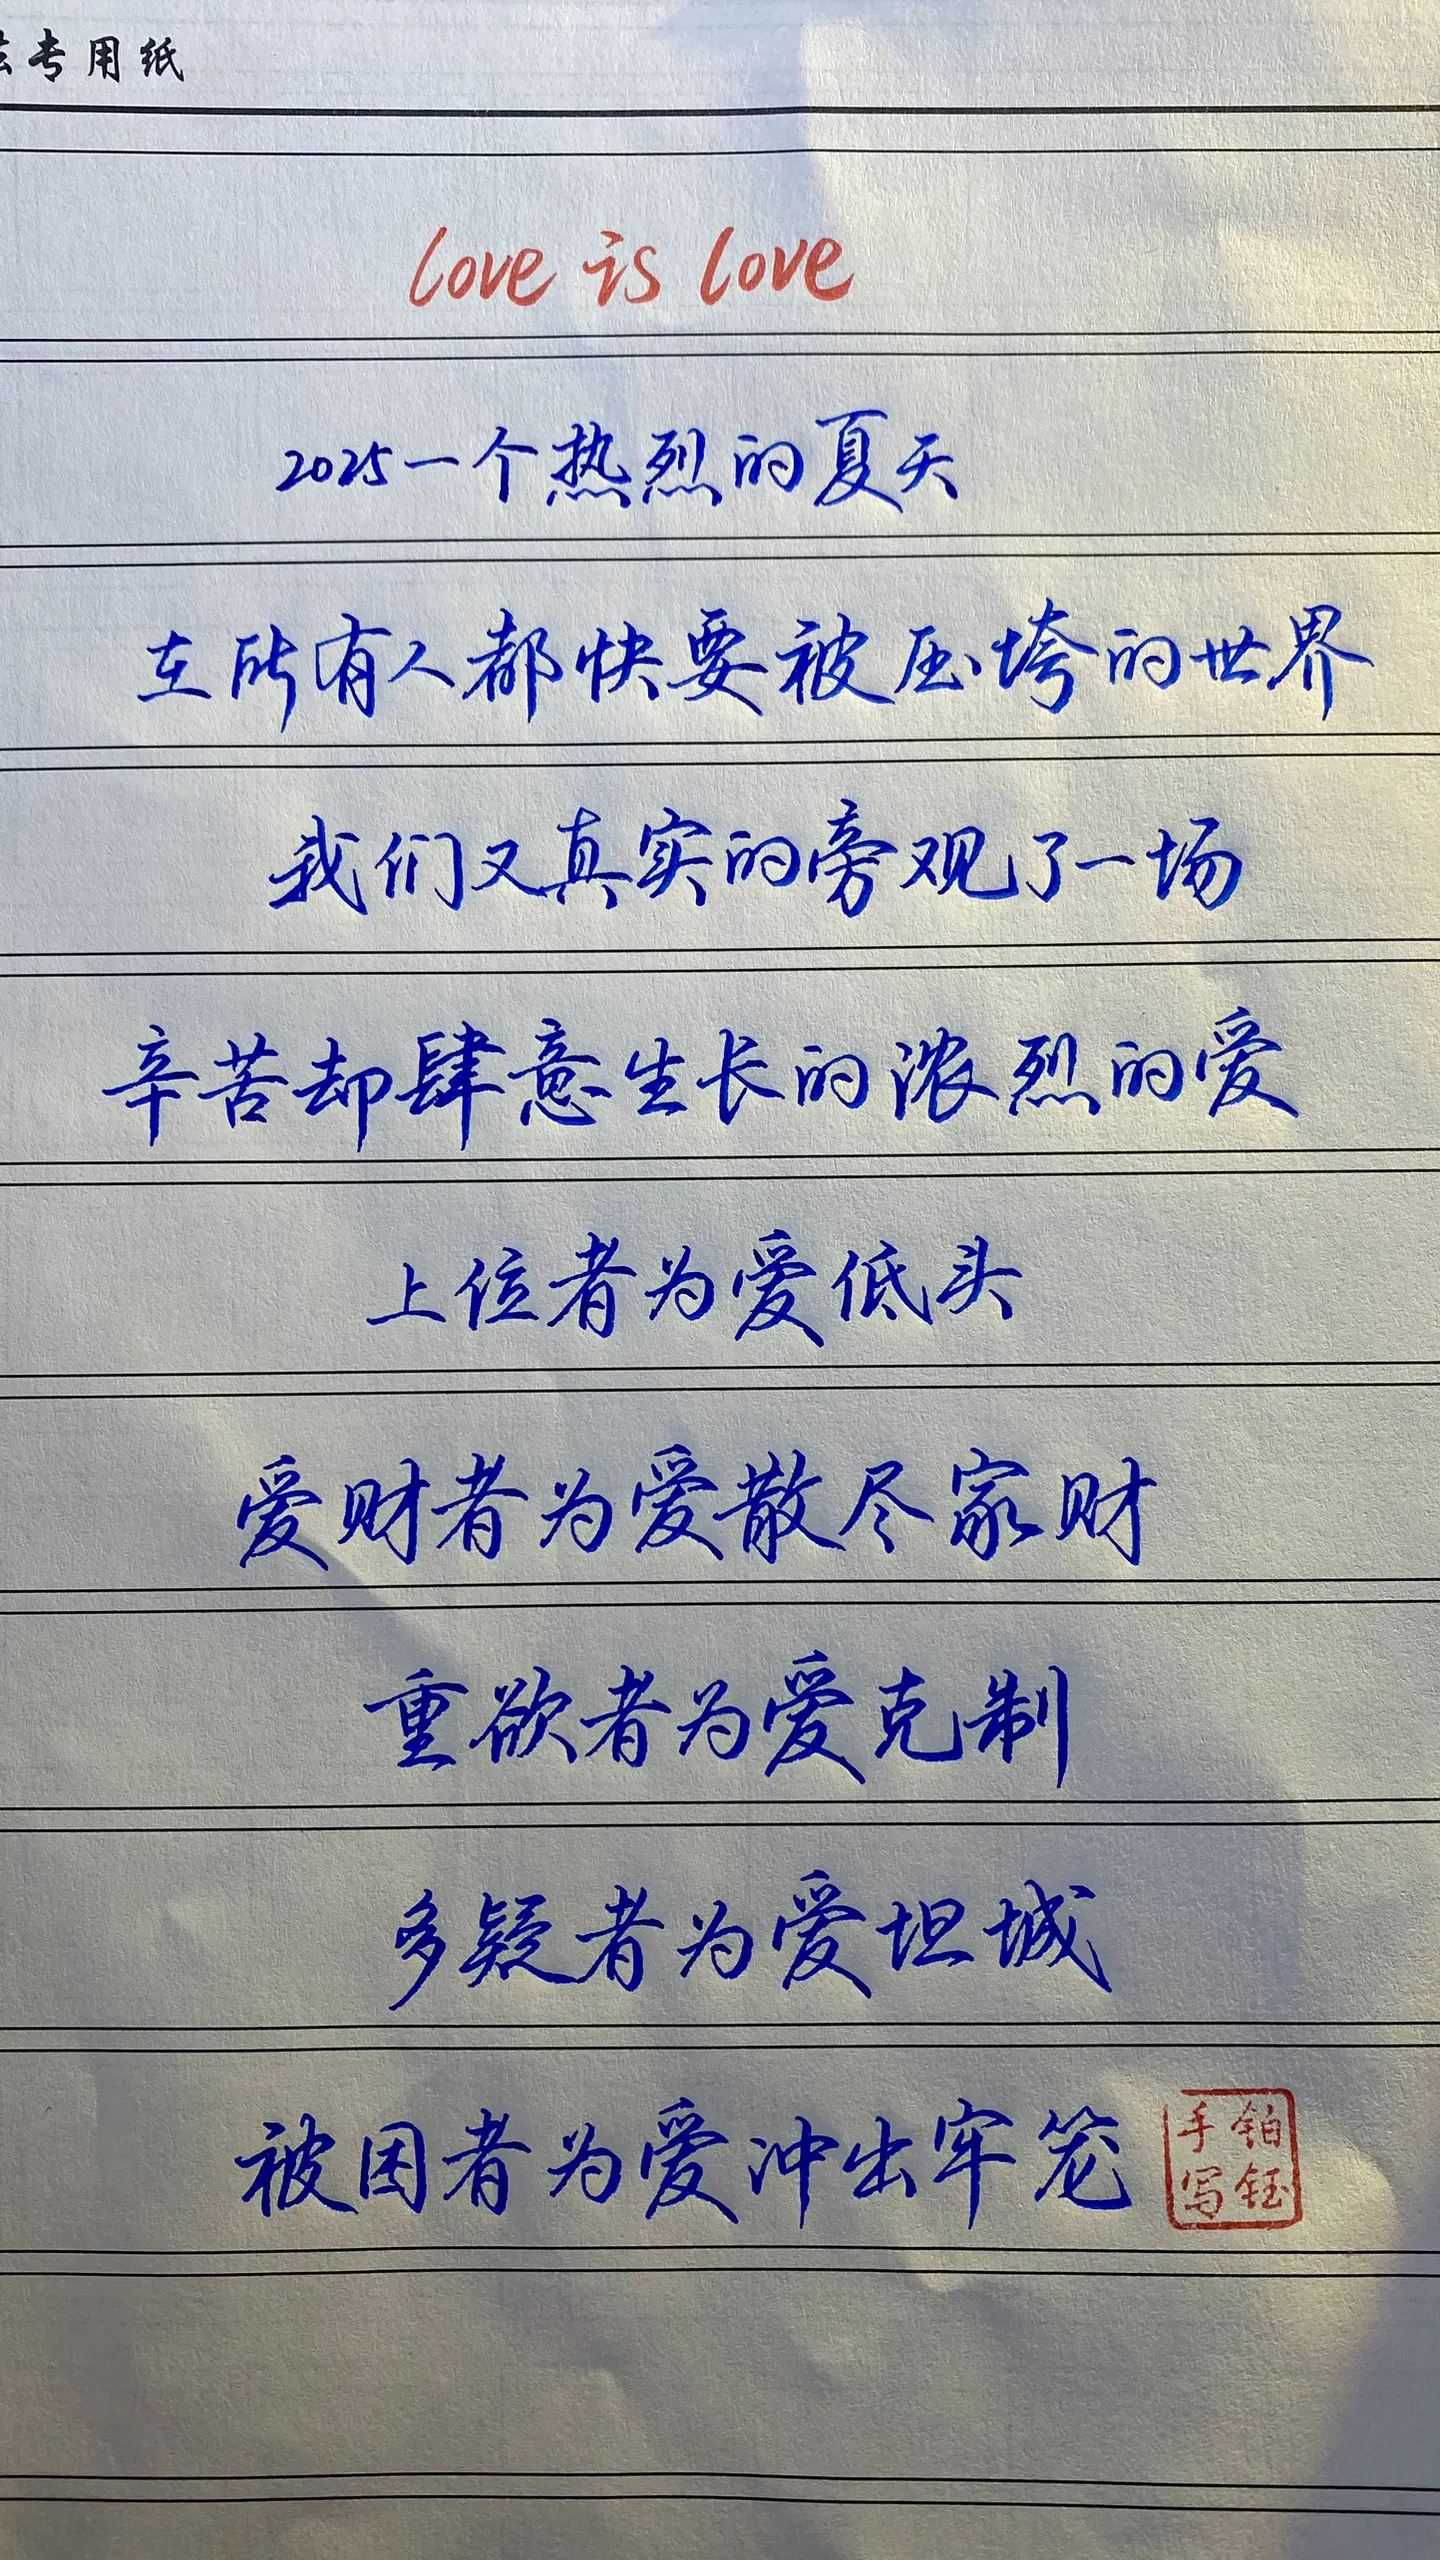 专用纸
love is love
2025一个热烈的夏天
在所有人都快要被压垮的世界
我们又真实的旁观了一场
辛苦却肆意生长的浓烈的爱
上位者为爱低头
爱财者为爱散尽家财
重欲者为爱克制
多疑者为爱坦城
被困者为爱冲出牢笼
铂钰
手写